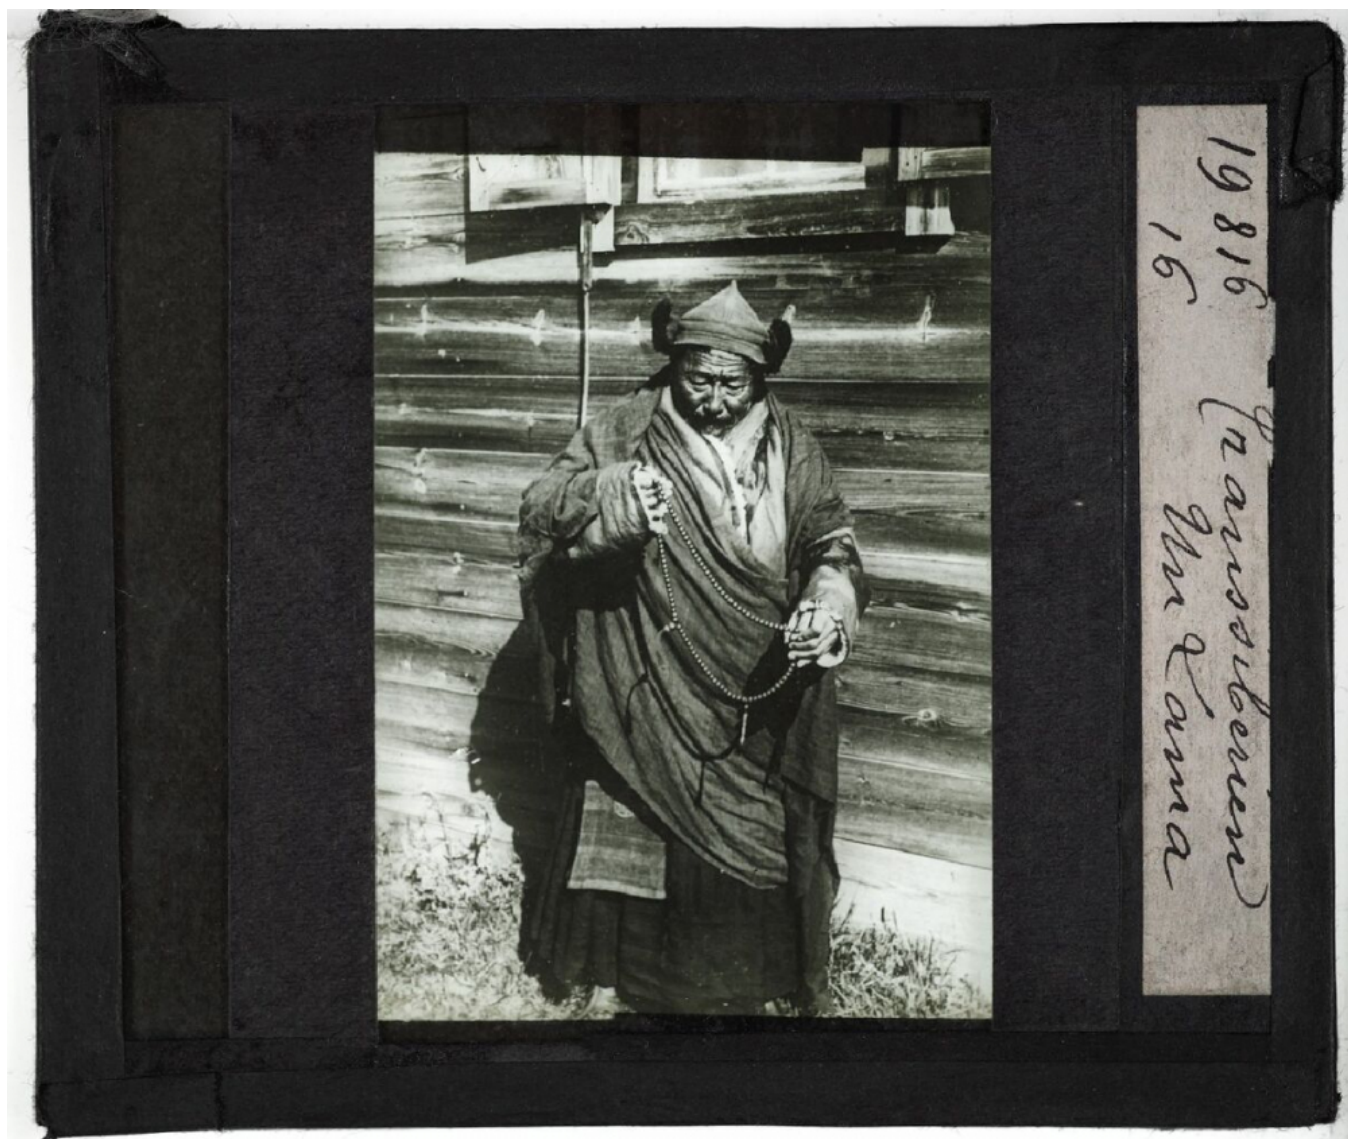 19816 Transsibirien
16 Un Lama